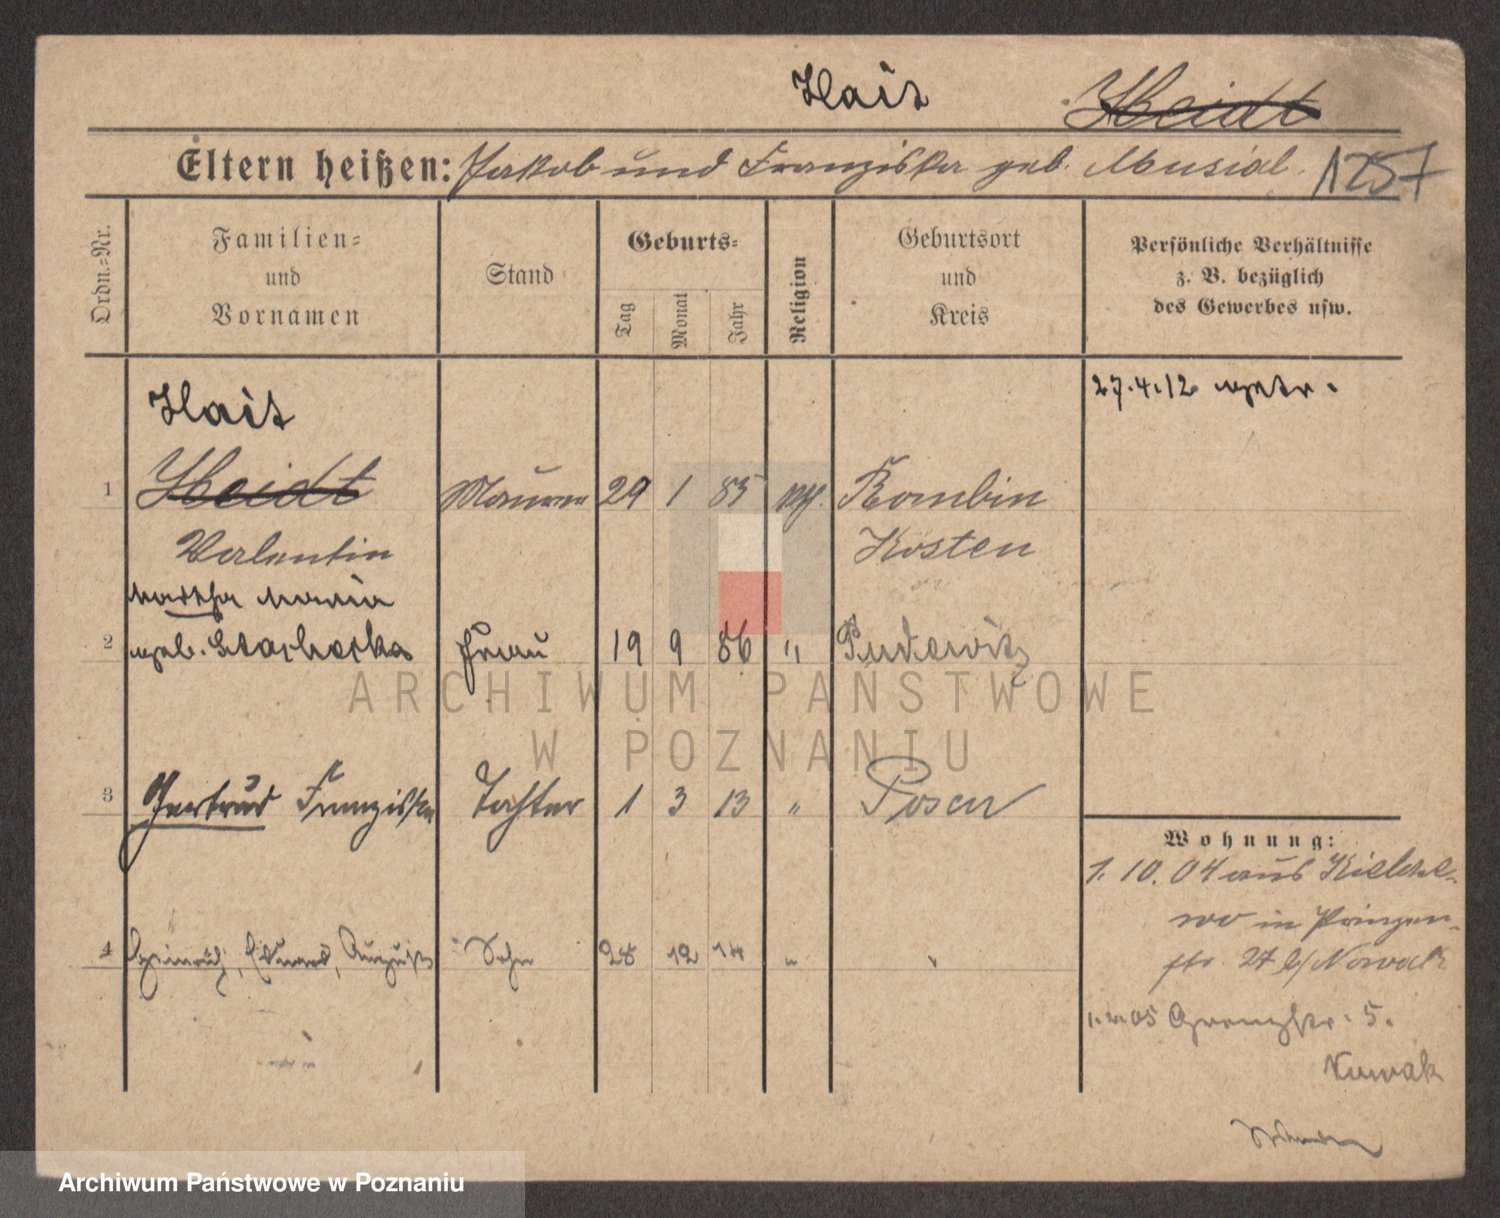 Hait Heidt
Eltern heißen: Jakob und Franziska geb. Musial. 1257
Ordn.-Nr.
Familien-
und
Vornamen
Stand
Geburts-
Tag
Monat
Jahr
Religion
Geburtsort
und
Kreis
Persönliche Verhältnisse
z. B. bezüglich
des Gewerbes usw.
27.4.12
Hait
1 Heidt Maurer 29 1 85 Kombin
Valentin Kosten
Martha Maria
2 geb. Frau 19 9 86 " Pudewitz
3 Gertrud Franziska Tochter 1 3 13 " Posen
4 Heinrich, Eduard, August Sohn 28 12 14 "
Wohnung:
1. 10. 04 aus
wo in Prinzen-
str. 27 b/ Nowak
1.2.05 Grenzstr. 5.
Nowak
ARCHIWUM PAŃSTWOWE
W POZNANIU
Archiwum Państwowe w Poznaniu